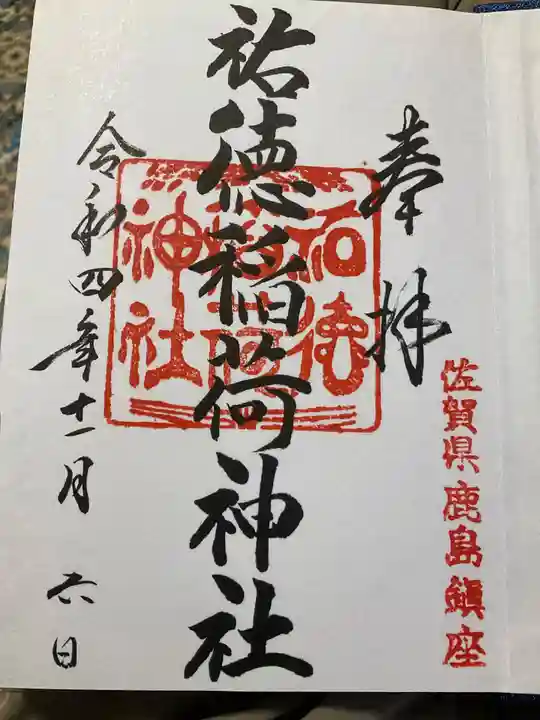 奉拝
佐賀県鹿島鎮座
祐徳稲荷神社
祐徳
稲荷
神社
令和四年十一月六日